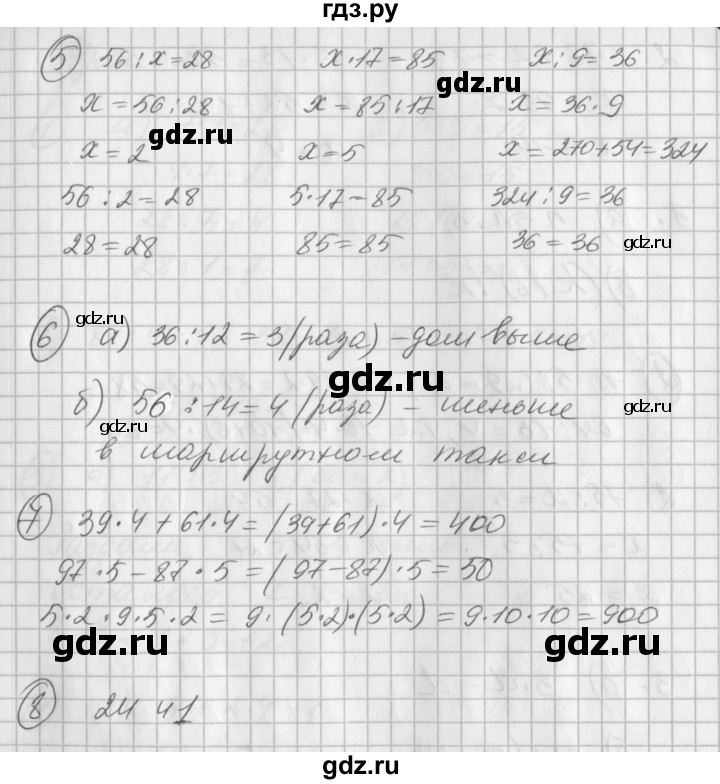 гдз.ру
5 56 : x = 28 x · 17 = 85 x : 9 = 36
gdz.ru
x = 56 : 28 x = 85 : 17 x = 36 · 9
gdz.ru
x = 2 x = 5 x = 270 + 54 = 324
56 : 2 = 28 5 · 17 = 85 324 : 9 = 36
28 = 28 85 = 85 36 = 36 gdz.ru
gdz.ru
6 а) 36 : 12 = 3 (раза) – дом выше
gdz.ru
б) 56 : 14 = 4 (раза) – меньше
gdz.ru gdz.ru
в маршрутном такси
7 39 · 4 + 61 · 4 = (39 + 61) · 4 = 400
97 · 5 – 87 · 5 = (97 – 87) · 5 = 50
5 · 2 · 9 · 5 · 2 = 9 · (5 · 2) · (5 · 2) = 9 · 10 · 10 = 900
gdz.ru gdz.ru
8 24 41
gdz.ru